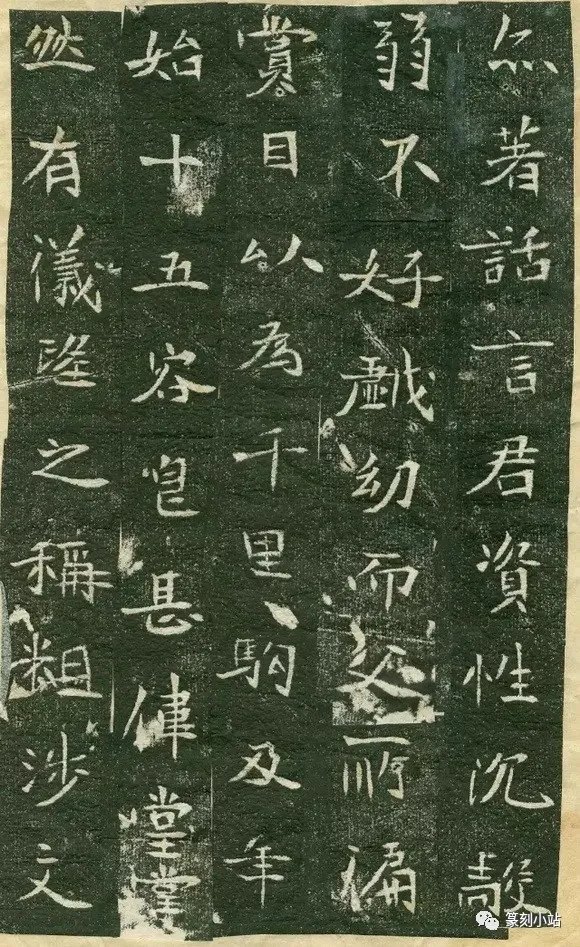 亦著話言君資性沉毅
弱不好戯幼而父所偏
賞目以為千里駒及年
始十五容皃甚偉堂堂
然有儀之稱粗涉文
篆刻小站